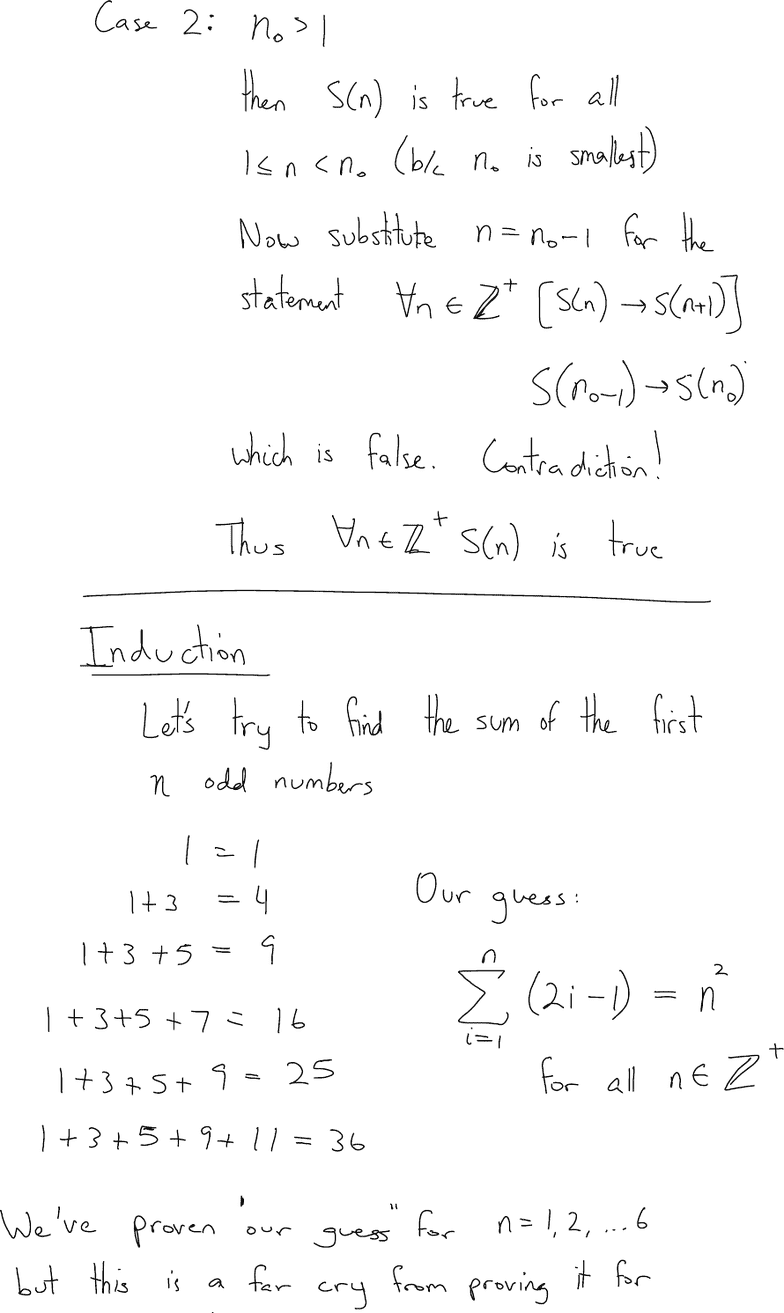 Case 2: n₀ > 1
then S(n) is true for all
1 ≤ n < n₀ (b/c n₀ is smallest)
Now substitute n = n₀-1 for the
statement ∀n ∈ ℤ⁺ [S(n) → S(n+1)]
S(n₀-1) → S(n₀)
which is false. Contradiction!
Thus ∀n ∈ ℤ⁺ S(n) is true
Induction
Let's try to find the sum of the first
n odd numbers
1 = 1
1+3 = 4
1+3+5 = 9
1+3+5+7 = 16
1+3+5+9 = 25
1+3+5+9+11 = 36
Our guess:
∑_{i=1}^{n} (2i-1) = n²
for all n ∈ ℤ⁺
We've proven "our guess" for n=1,2,...6
but this is a far cry from proving it for